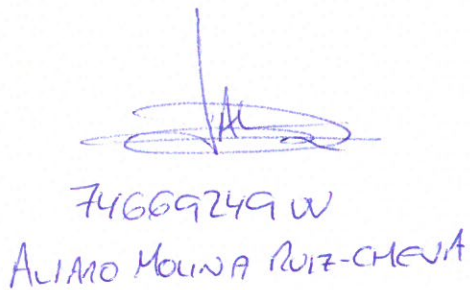 74669249W
ALVARO MOLINA RUIZ-CHENA